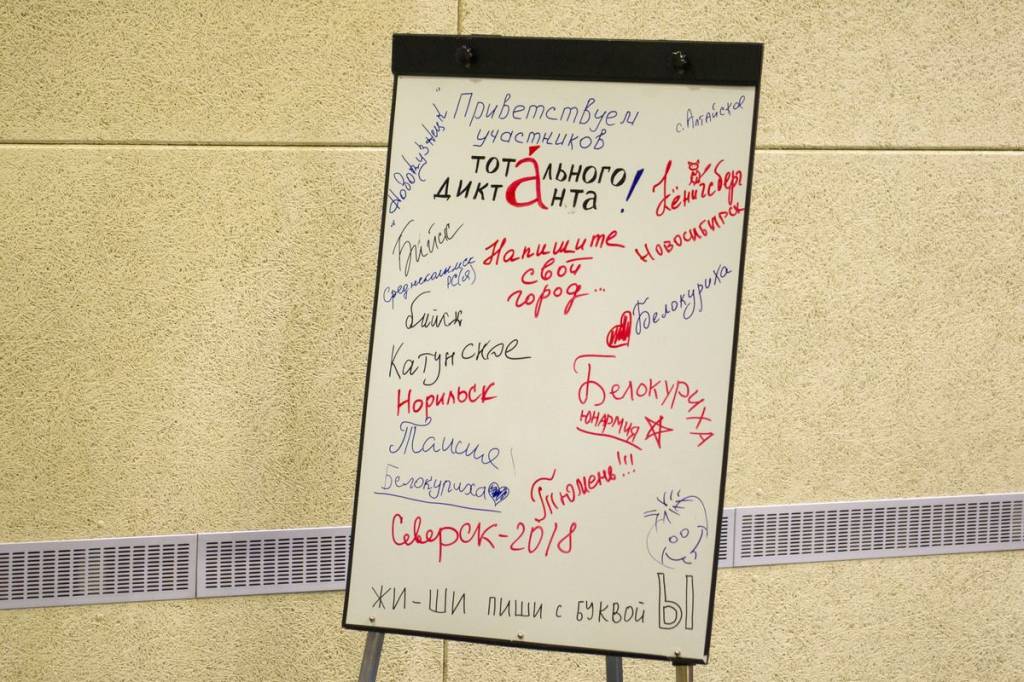 Приветствуем
участников
тотального
диктанта!
с. Алтайское
"Новокузнецк"
Кёнигсберг
Напишите
свой
город...
Новосибирск
Бийск
Среднеколымск
РС(Я)
Бийск
Белокуриха
Катунское
Белокуриха
ЮНАРМИЯ
Норильск
Таисия
Белокуриха
Тюмень!!!
Северск-2018
ЖИ-ШИ ПИШИ С БУКВОЙ Ы